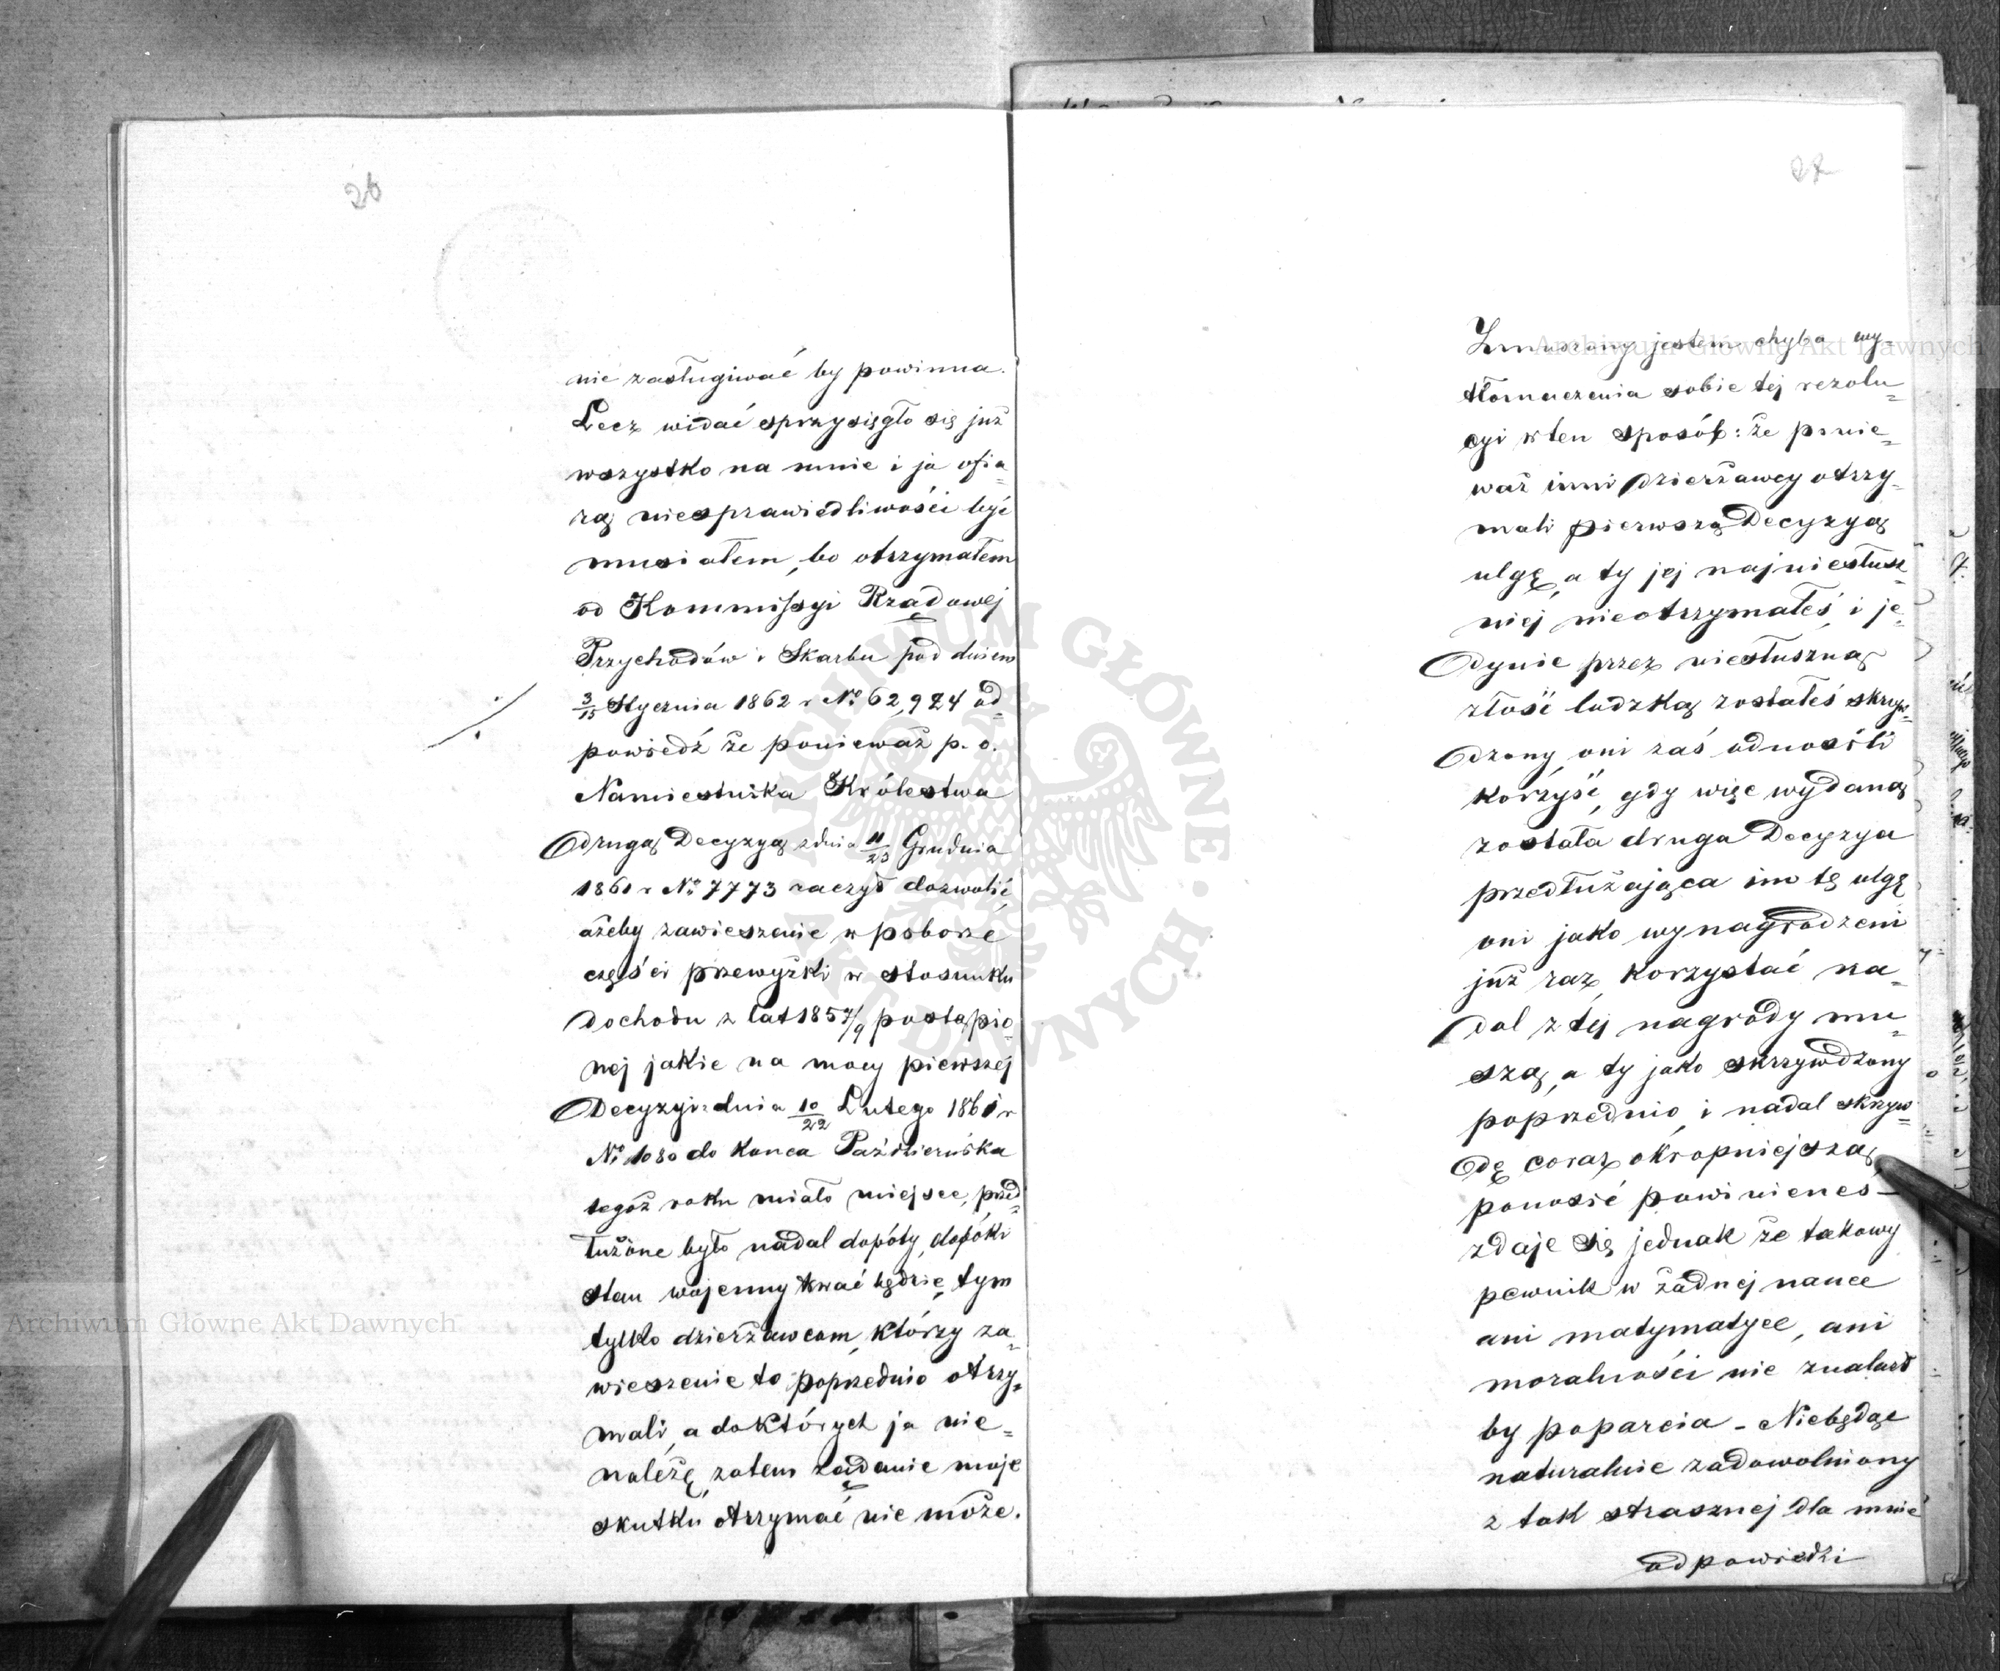 26
nie zasługiwać by powinna.
Lecz widać sprzysięgło się już
wszystko na mnie i ja ofia=
rą niesprawiedliwości być
musiałem, bo otrzymałem
od Kommissyi Rządowej
Przychodów i Skarbu pod dniem
3/15 Stycznia 1862 r No 62,924 od=
powiedź że ponieważ p. o.
Namiestnika Królestwa
drugą Decyzyą z dnia 11/23 Grudnia
1861 r No 7773 raczył dozwolić,
ażeby zawieszenie w poborze
części przewyżki w stosunku
dochodu z lat 1857/9 postąpio=
nej jakie na mocy pierwszej
Decyzyi z dnia 10/22 Lutego 1861 r
No 1080 do końca Października
tegoż roku miało miejsce, przed=
łużone było nadal dopóty, dopóki
stan wojenny trwać będzie, tym
tylko dzierżawcom, którzy za=
wieszenie to poprzednio otrzy=
mali, a do których ja nie=
należę, zatem żądanie moje
skutku otrzymać nie może.
27
Zmuszony jestem chyba wy=
tłomaczenia sobie tej rezolu=
cyi w ten sposób: że ponie=
waż inni dzierżawcy otrzy=
mali pierwszą Decyzyą
ulgę, a ty jej najniesłusz=
niej nieotrzymałeś, i je=
dynie przez niesłuszną
złość ludzką zostałeś skrzyw=
dzony, oni zaś odnosili
korzyść, gdy więc wydaną
została druga Decyzya
przedłużająca im tę ulgę
oni jako wynagrodzeni
już raz, korzystać na=
dal z tej nagrody mu=
szą, a ty jako skrzywdzony
poprzednio, i nadal skrzyw=
dę coraz okropniejszą
ponosić powinieneś –
zdaje się jednak że takowy
pewnik w żadnej nauce
ani matymatyce, ani
moralności nie znalazł
by poparcia – Niebędąc
naturalnie zadowolniony
z tak strasznej dla mnie
odpowiedzi
Archiwum Główne Akt Dawnych
Archiwum Główne Akt Dawnych
ARCHIWUM GŁÓWNE AKT DAWNYCH